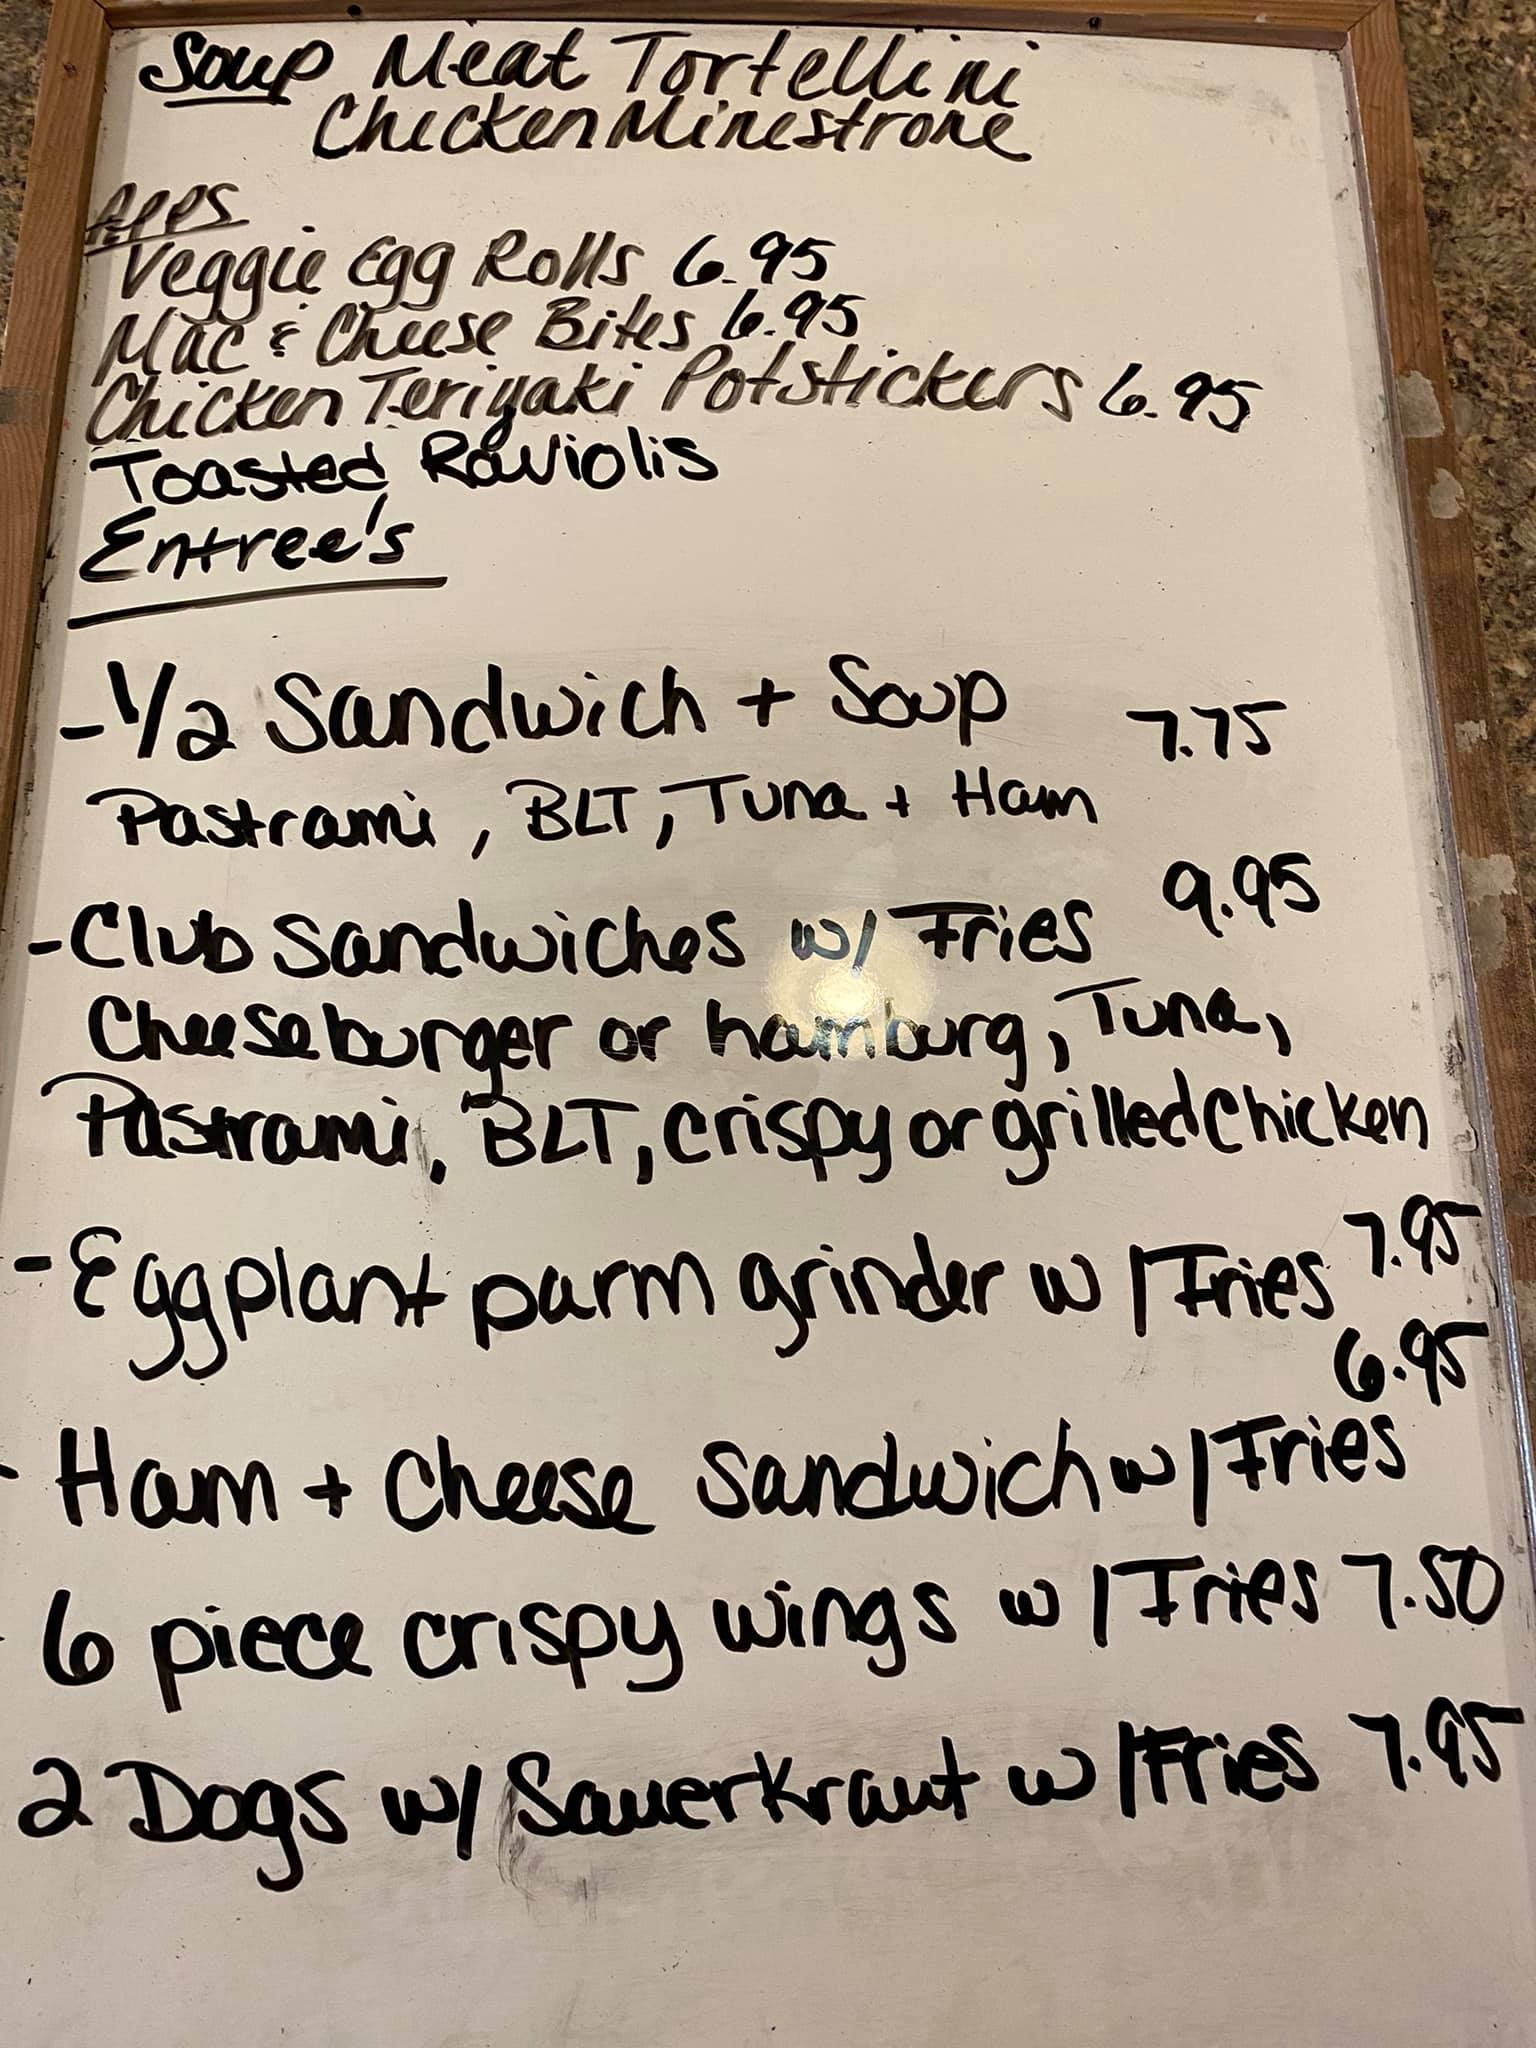 Soup Meat Tortellini
Chicken Minestrone
Apps
Veggie Egg Rolls 6.95
Mac & Cheese Bites 6.95
Chicken Teriyaki Potstickers 6.95
Toasted Raviolis
Entree's
- 1/2 Sandwich + Soup 7.75
Pastrami, BLT, Tuna + Ham
- Club Sandwiches w/ Fries 9.95
Cheeseburger or hamburg, Tuna,
Pastrami, BLT, crispy or grilled chicken
- Eggplant parm grinder w/ Fries 7.95
- Ham + Cheese Sandwich w/ Fries 6.95
- 6 piece crispy wings w/ Fries 7.50
2 Dogs w/ Sauerkraut w/ Fries 7.95